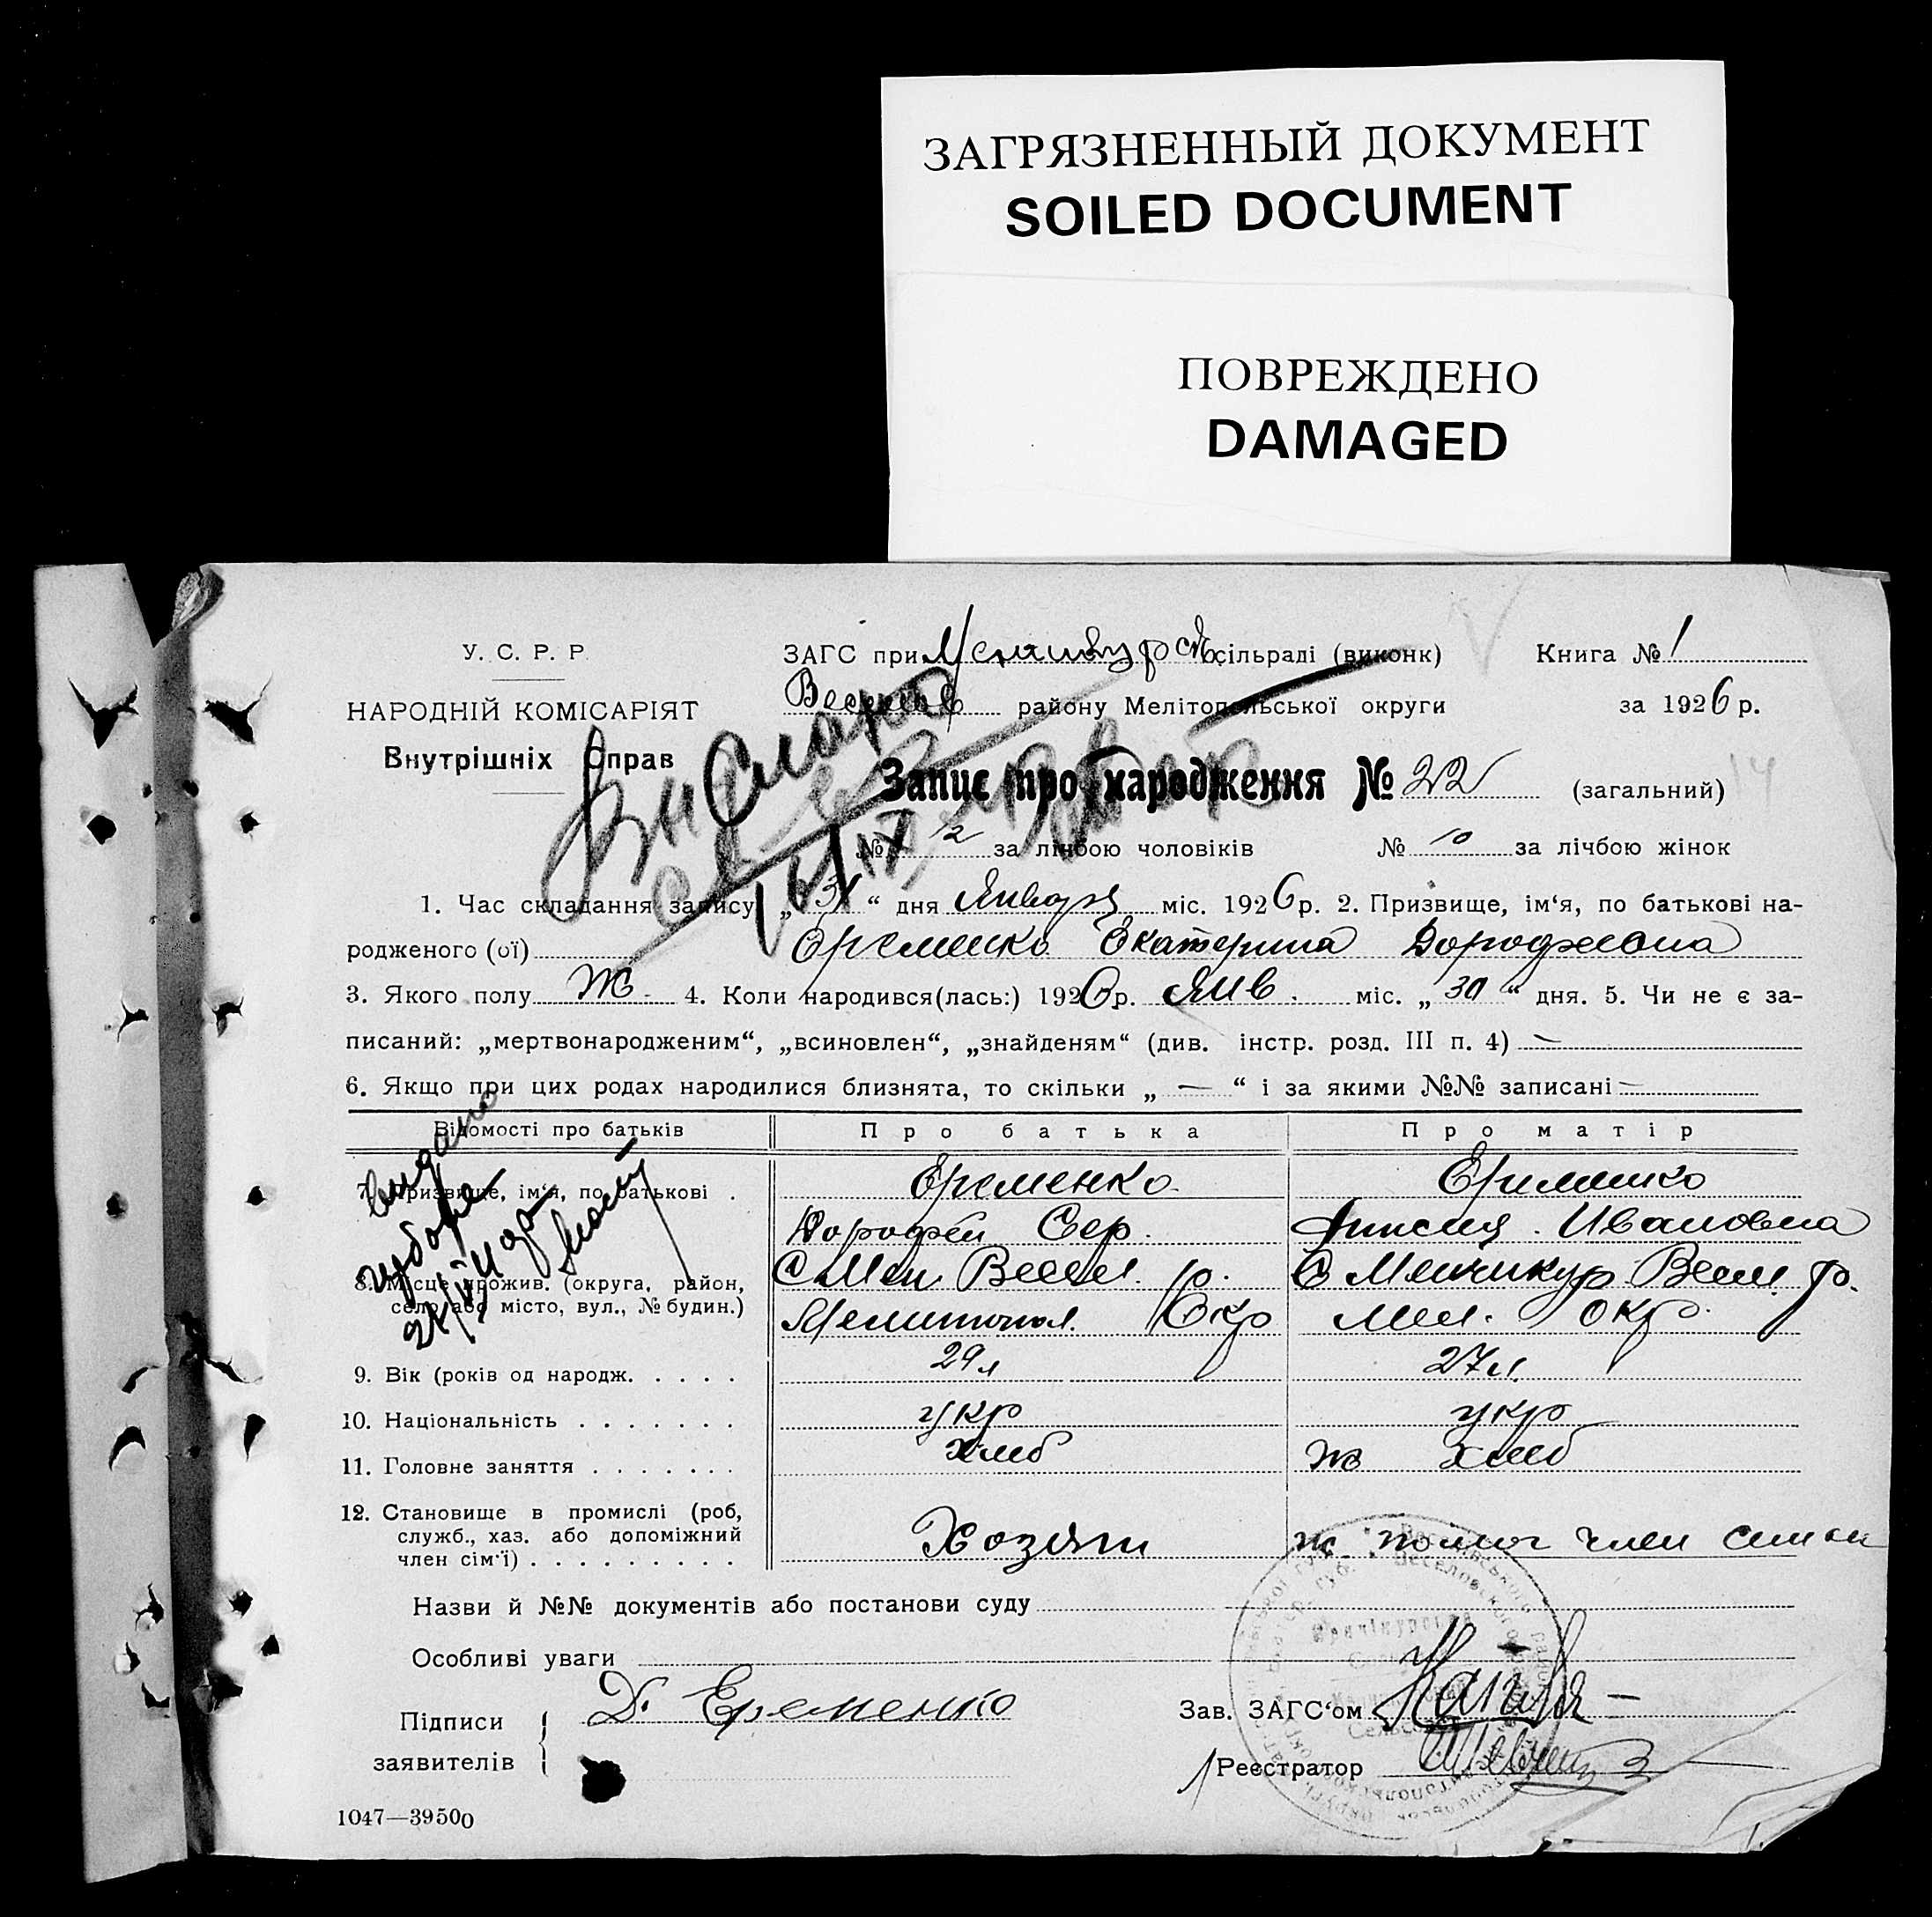 ЗАГРЯЗНЕННЫЙ ДОКУМЕНТ
SOILED DOCUMENT
ПОВРЕЖДЕНО
DAMAGED
У. С. Р. Р.
НАРОДНІЙ КОМІСАРІЯТ
Внутрішніх Справ
ЗАГС при сільраді (виконк)
району Мелітопольської округи
Книга № 1
за 1926 р.
Запис про народження № 22 (загальний)
14
№ 12 за лічбою чоловіків № 10 за лічбою жінок
1. Час складання запису „ 31 “ дня Января міс. 1926 р. 2. Призвище, ім‘я, по батькові на-
родженого (ої) Еременко Екатерина Дорофеевна
3. Якого полу Ж. 4. Коли народився(лась:) 1926 р. Янв. міс. „ 30 “ дня. 5. Чи не є за-
писаний: „мертвонародженим“, „всиновлен“, „знайденям“ (див. інстр. розд. III п. 4) —
6. Якщо при цих родах народилися близнята, то скільки „ — “ і за якими №№ записані —
Відомості про батьків Про батька Про матір
7. Призвище, ім‘я, по батькові . Еременко Еременко
Дорофей Сер. Ивановна
8. Місце прожив. (округа, район, С Мен. Весел. р. С Менчикур Весел. р.
село або місто, вул., № будин.) Мелитопол. Окр Мел. окр.
9. Вік (років од народж. . . . . 29 л 27 л.
10. Національність . . . . . . . укр укр
11. Головне заняття . . . . . . . хлеб ж хлеб
12. Становище в промислі (роб,
служб., хаз. або допоміжний Хозяин помог член семьи
член сім‘ї) . . . . . . . . .
Назви й №№ документів або постанови суду
Особливі уваги
Підписи Д. Еременко Зав. ЗАГС‘ом
заявителів Реєстратор
1047—39500